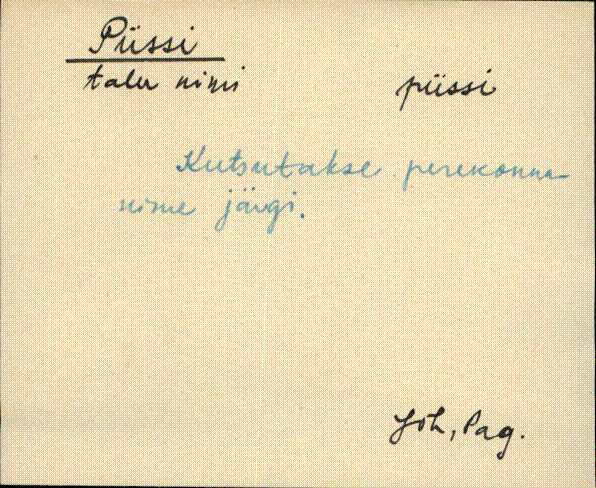 Püssi
talu nimi püssi
Kutsutakse perekonna-
nime järgi.
Joh, Pag.